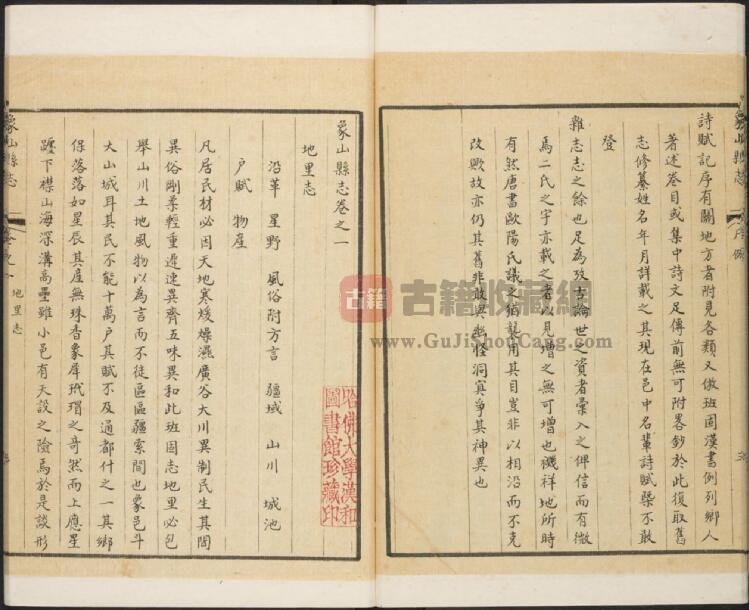 詩賦記序有關地方者附見各類又倣班固漢書例列鄉人
著述卷目或集中詩文足傳前無可附畧鈔於此復取舊
志修纂姓名年月詳載之其現在邑中名輩詩賦槩不敢
登
雜志志之餘也足為攷古論世之資者彙入之俾信而有徵
焉二氏之宇亦載之者以見增之無可增也禨祥地所時
有然唐書歐陽氏議之猶襲用其目豈非以相沿而不克
改歟故亦仍其舊非敢與幽怪洞冥爭其神異也
象山縣志卷之一
地里志
沿革 星野 風俗附方言 疆域 山川 城池
户賦 物産
凡居民材必因天地寒煖燥濕廣谷大川異制民生其閒
異俗剛柔輕重遲速異齊五味異和此班固志地里必包
舉山川土地風物以為言而不徒區區疆索間也象邑斗
大山城耳其民不能十萬户其賦不及通都什之一其鄉
保落落如星辰其産無珠香象犀玳瑁之奇然而上應星
躔下襟山海深溝高壘雖小邑有天設之險焉於是談形
象山縣志
地里志
哈佛大學漢和
圖書館珍藏印
古籍
古籍收藏網
www.GuJiShouCang.com